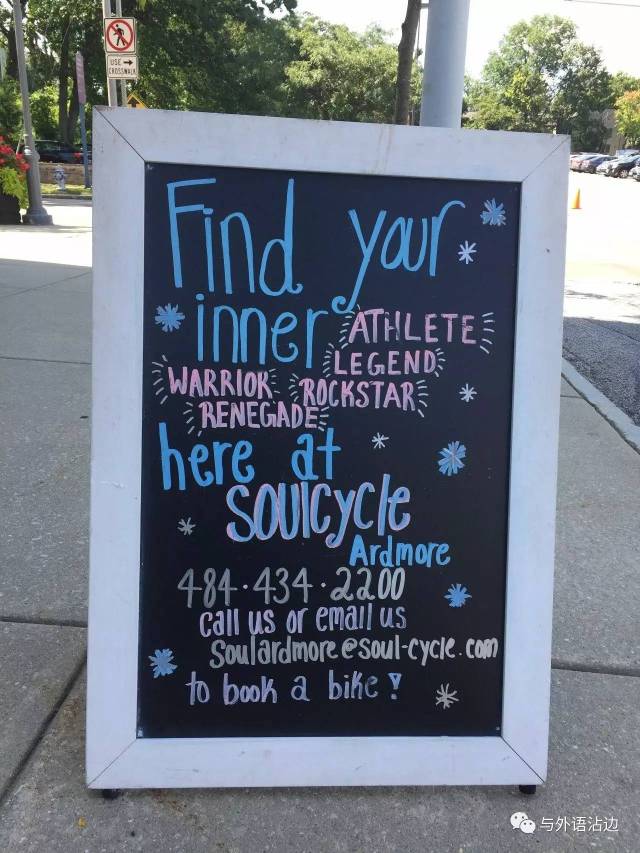 USE →
CROSSWALK
Find your
inner ATHLETE
LEGEND
WARRIOR ROCKSTAR
RENEGADE
here at
SOULCYCLE
Ardmore
484·434·2200
call us or email us
Soulardmore@soul-cycle.com
to book a bike!
与外语沾边